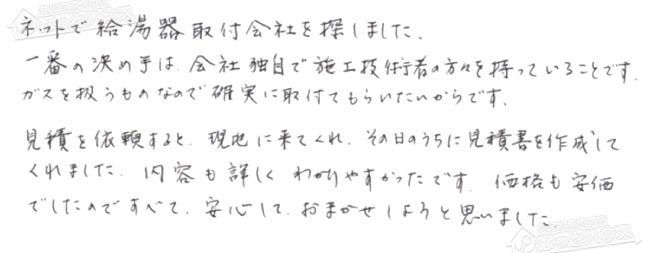 ネットで給湯器取付会社を探しました。
一番の決め手は、会社独自で施工技術者の方々を持っていることです。
ガスを扱うものなので確実に取付てもらいたいからです。
見積を依頼すると、現地に来てくれ、その日のうちに見積書を作成して
くれました。内容も詳しくわかりやすかったです。価格も安価
でしたのですべて、安心して、おまかせしようと思いました。